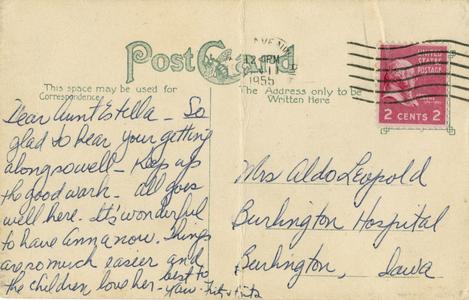 Post Card
12 PM
1955
UNITED
STATES
POSTAGE
2 CENTS 2
This space may be used for
Correspondence
The Address only to be
Written Here
Dear Aunt Estella – So
glad to hear your getting
along so well – Keep up
the good work – All goes
well here. It's wonderful
to have Anna now. Things
are so much easier and
the children love her – best to
you –
Mrs Aldo Leopold
Burlington Hospital
Burlington, Iowa